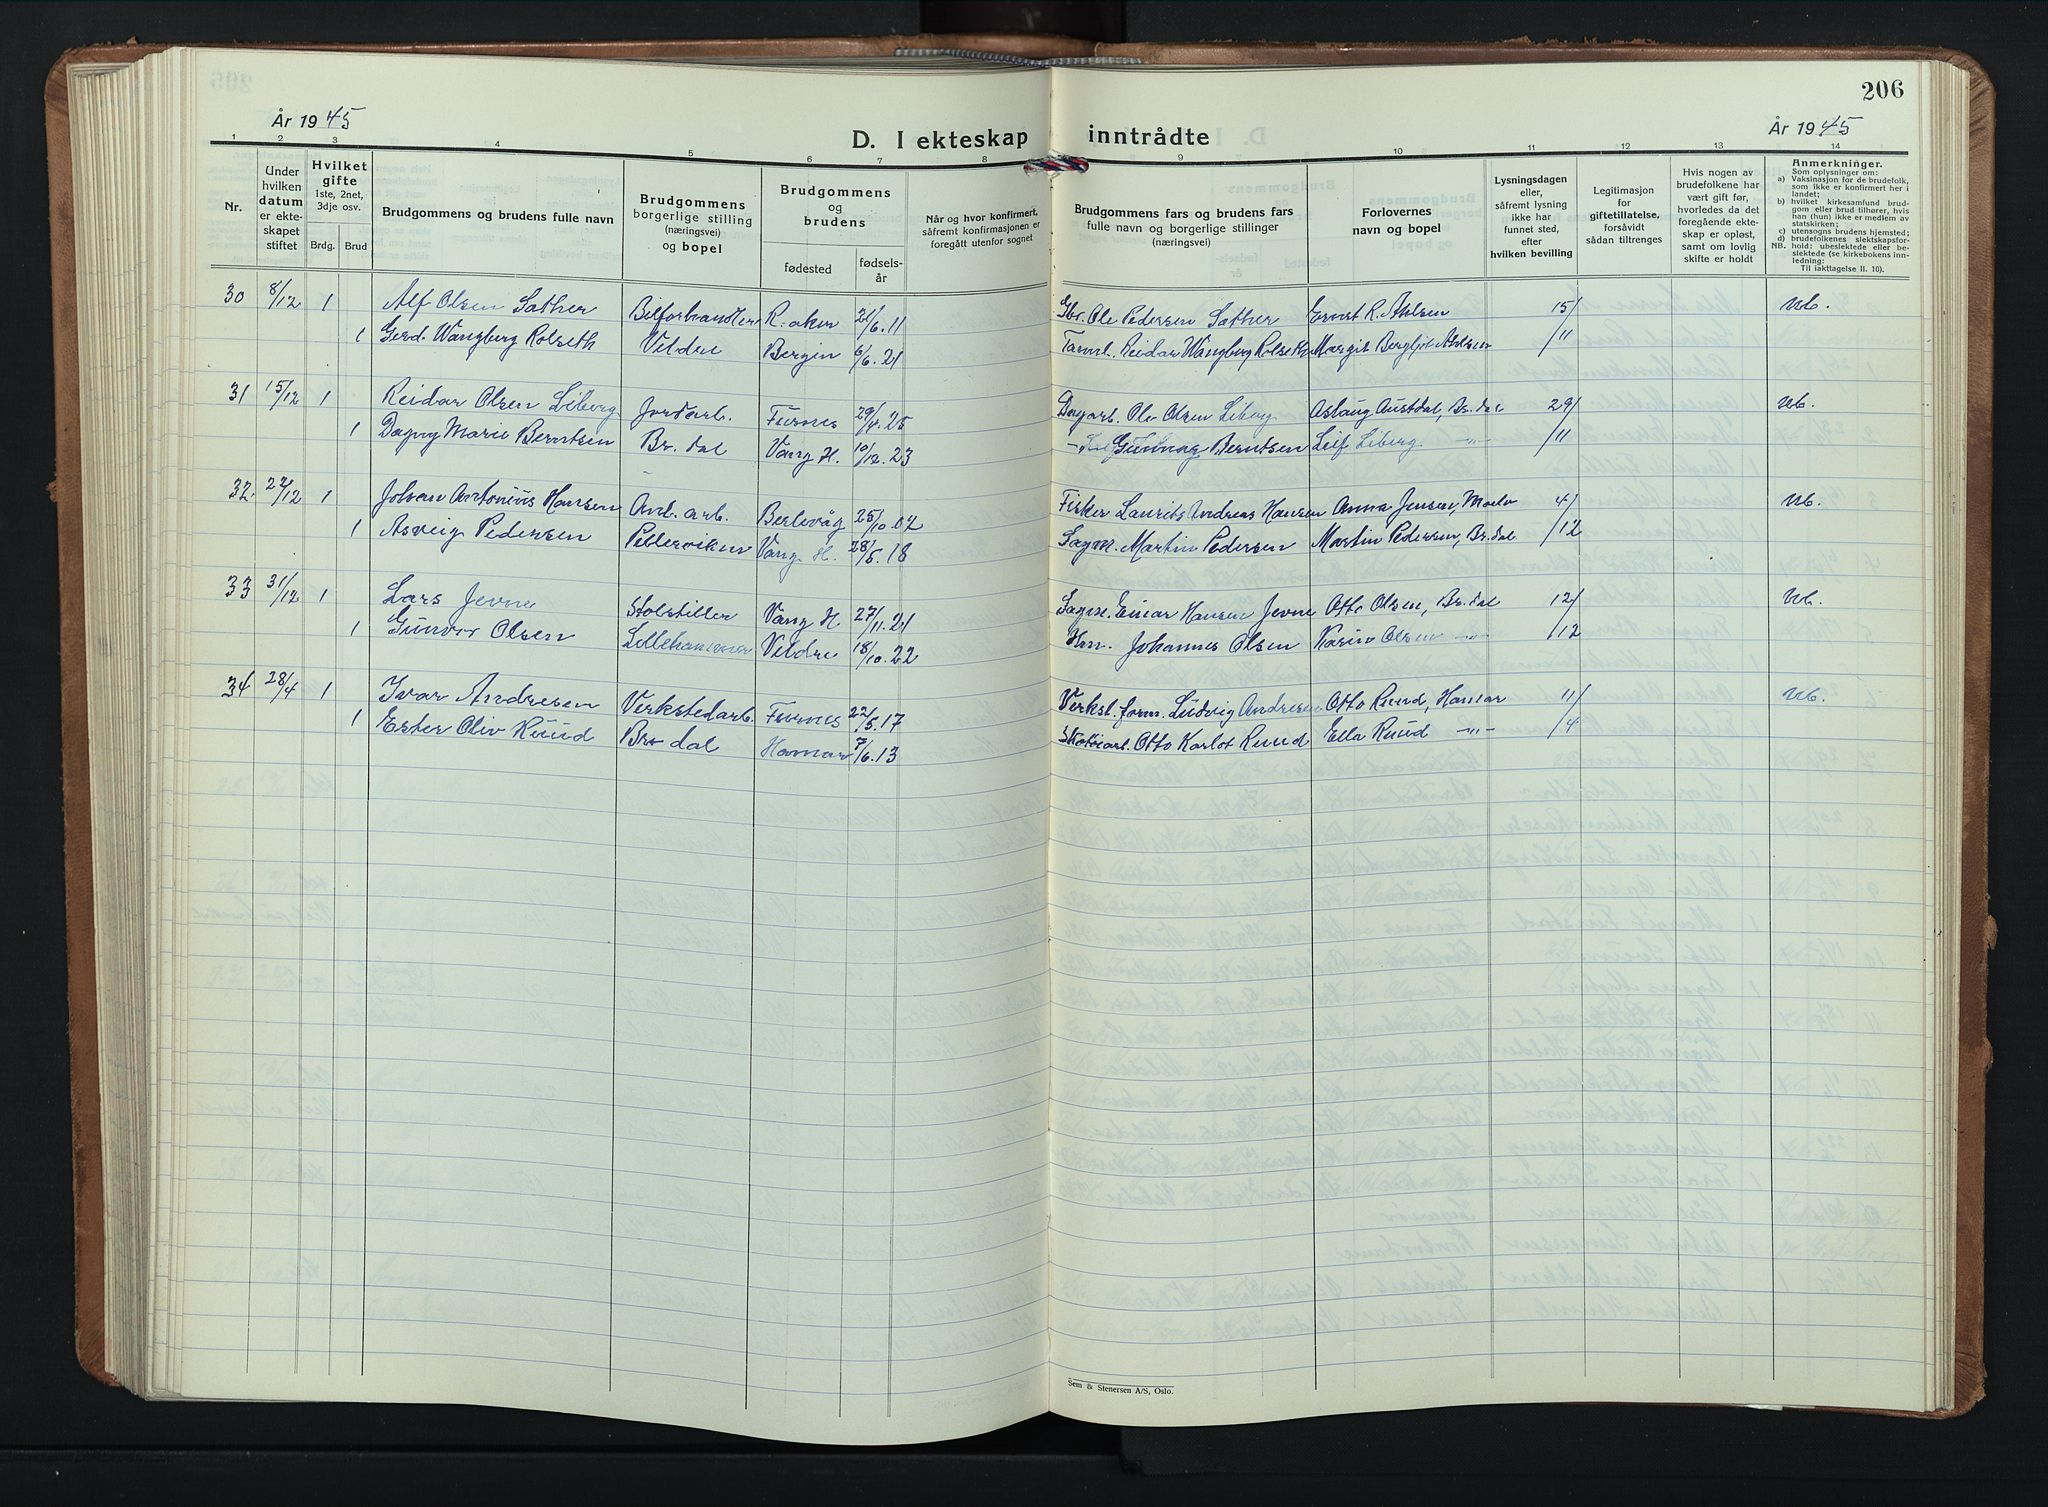 206
År 1945
D. I ekteskap inntrådte
År 1945
1 2 3 4 5 6 7 8 9 10 11 12 13 14
Nr.
Under hvilken datum er ekteskapet stiftet
Hvilket gifte
1ste, 2net, 3dje osv.
Brdg. Brud
Brudgommens og brudens fulle navn
Brudgommens borgerlige stilling (næringsvei) og bopel
Brudgommens og brudens
fødested
fødselsår
Når og hvor konfirmert, såfremt konfirmasjonen er foregått utenfor sognet
Brudgommens fars og brudens fars fulle navn og borgerlige stillinger (næringsvei)
Forlovernes navn og bopel
Lysningsdagen eller, såfremt lysning ikke har funnet sted, efter hvilken bevilling
Legitimasjon for giftetillatelse, forsåvidt sådan tiltrenges
Hvis nogen av brudefolkene har vært gift før, hvorledes da det foregående ekteskap er opløst, samt om lovlig skifte er holdt
Anmerkninger.
Som oplysninger om:
a) Vaksinasjon for de brudefolk, som ikke er konfirmert her i landet;
b) hvilket kirkesamfund brudgom eller brud tilhører, hvis han (hun) ikke er medlem av statskirken;
c) utensogns brudens hjemsted;
d) brudefolkenes slektskapsforhold: ubeslektede eller beslektede (se kirkebokens innledning:
NB. Til iakttagelse II. 10).
30 8/12 1 Alf Olsen Sæther Bilforhandler R.aker 21/6.11 Gbr. Ole Pedersen Sæther Ernst R. Ahlsen 15/ ub.
1 Gerd Wangberg Rolseth Veldre Bergen 6/6.21 Tannl. Reidar Wangberg Rolseth Margit Bergljot Ahlsen /11
31 15/12 1 Reidar Olsen Liberg Jordarb. Furnes 29/4.25 Dagarb. Ole Olsen Liberg Aslaug Austdal, Br.dal 29/ ub.
1 Dagny Marie Berntsen Br.dal Vang H. 10/12.23 Gunnar Berntsen Leif Liberg -"- /11
32 22/12 1 Johan Antonius Hansen And. arb. Berlevåg 25/10.02 Fisker Laurits Andreas Hansen Anna Jensen, Moelv 4/ ub.
1 Asveig Pedersen Pellerviken Vang H. 28/5.18 Sagm. Martin Pedersen Martin Pedersen, Br.dal /12
33 31/12 1 Lars Jevne Stolstiller Vang H 27/11.21 Sagm. Einar Hansen Jevne Otto Olsen, Br.dal 12/ ub.
1 Gunvor Olsen Lillehammer Veldre 18/10.22 Hm. Johannes Olsen Karin Olsen -"- /12
34 28/4 1 Ivar Andresen Verkstedarb. Furnes 22/5.17 Verkst.form. Ludvig Andresen Otto Ruud, Hamar 11/ ub.
1 Ester Oliv Ruud Brdal Hamar 7/6.13 Skotøiarb. Otto Karlot Ruud Ella Ruud -"- /4
Sem & Stenersen A/S, Oslo.